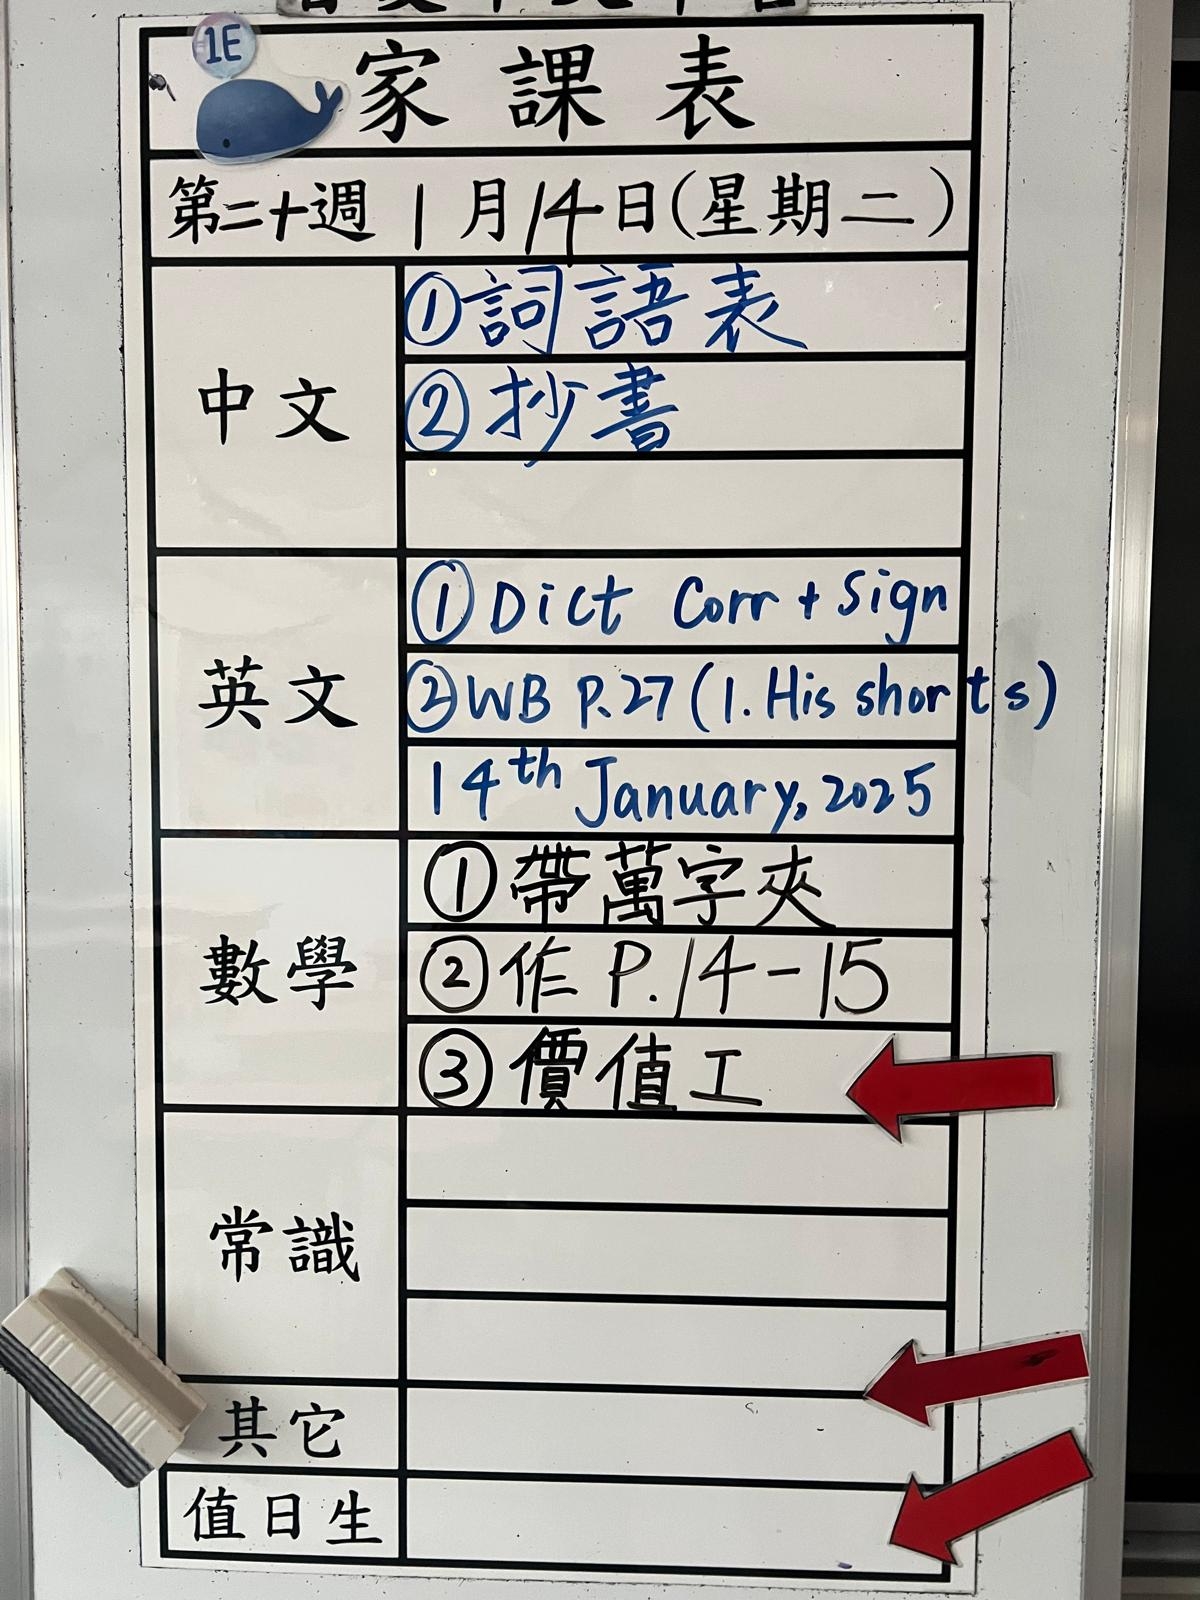 1E
家課表
第二十週 1月14日(星期二)
中文
①詞語表
②抄書
英文
①Dict Corr + Sign
②WB P.27 (1. His shorts)
14th January, 2025
數學
①帶萬字夾
②作 P.14-15
③價值工
常識
其它
值日生